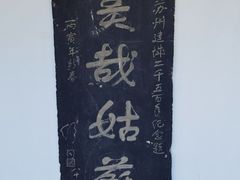 苏州建城二千五百年纪念题
美哉姑苏
丙寅年新春